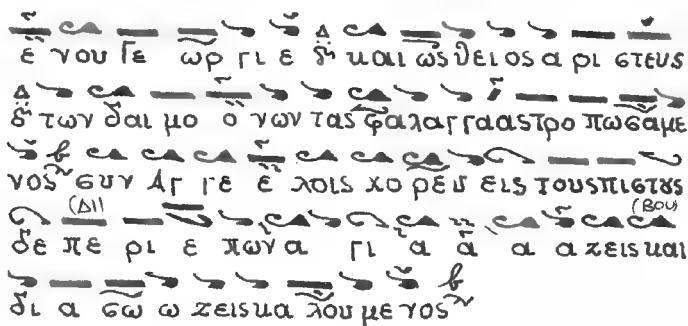 ε νου Γε ωρ γι ε δ και ως θει ος α ρι στευς
δ των δαι μο ο νων τας φα λαγ γα ας τρο πω σα με
νος συν Αγ γε ε λοις χο ρεις εις τους πι στους
(ΔΙ) (ΒΟΥ)
δε πε ρι ε πων α γι α α α α ζεις και
δι α σω ω ζεις κα λου με νος